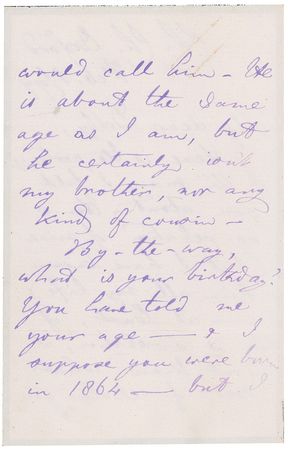 would call him - He
is about the same
age as I am, but
he certainly isn't
my brother, nor any
kind of cousin -
By-the-way,
what is your birthday?
You have told me
your age — & I
suppose you were born
in 1864 — but I